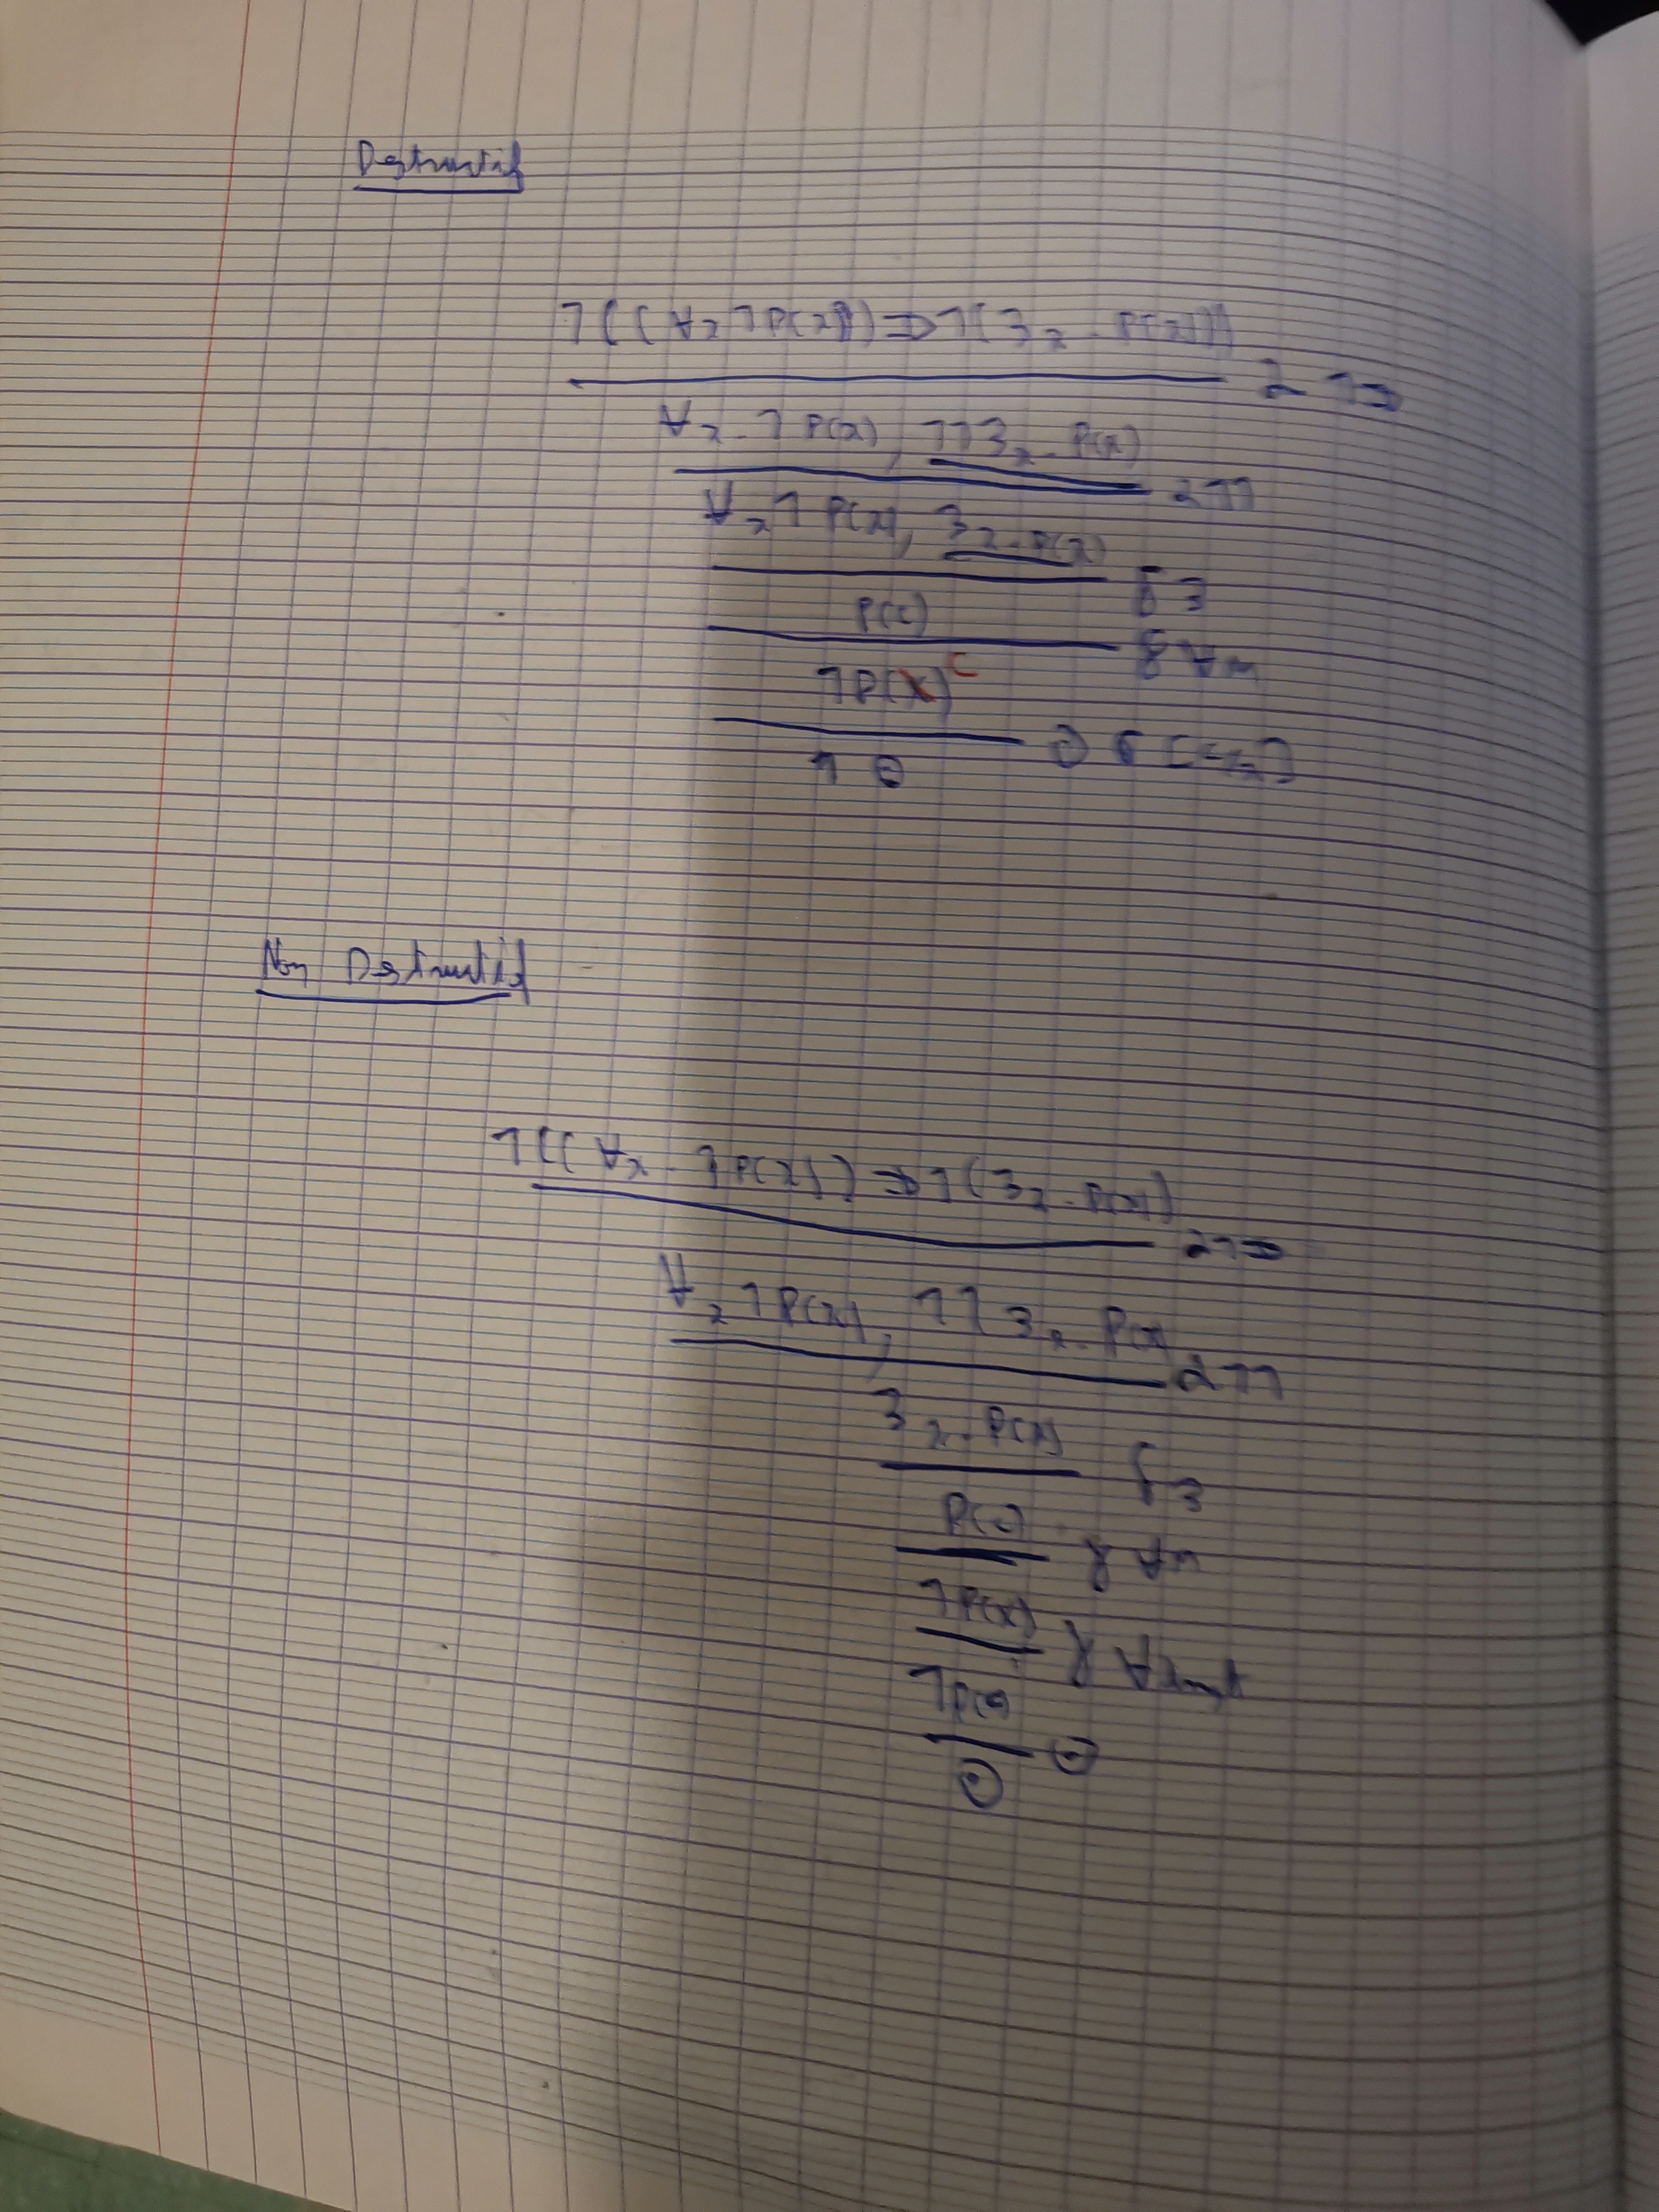 Destructif
¬((∀x ¬P(x)) ⇒ ¬(∃x. P(x)))
α¬⇒
∀x. ¬P(x), ¬¬∃x. P(x)
α¬¬
∀x ¬P(x), ∃x. P(x)
δ∃
P(c)
γ∀M
¬P(X) c
⊙
Non Destructif
¬((∀x. ¬P(x)) ⇒ ¬(∃x. P(x))
α¬⇒
∀x ¬P(x), ¬¬∃x. P(x
α¬¬
∃x. P(x)
δ∃
P(c)
γ∀M
¬P(X)
γ∀inst
¬P(c)
⊙
⊙